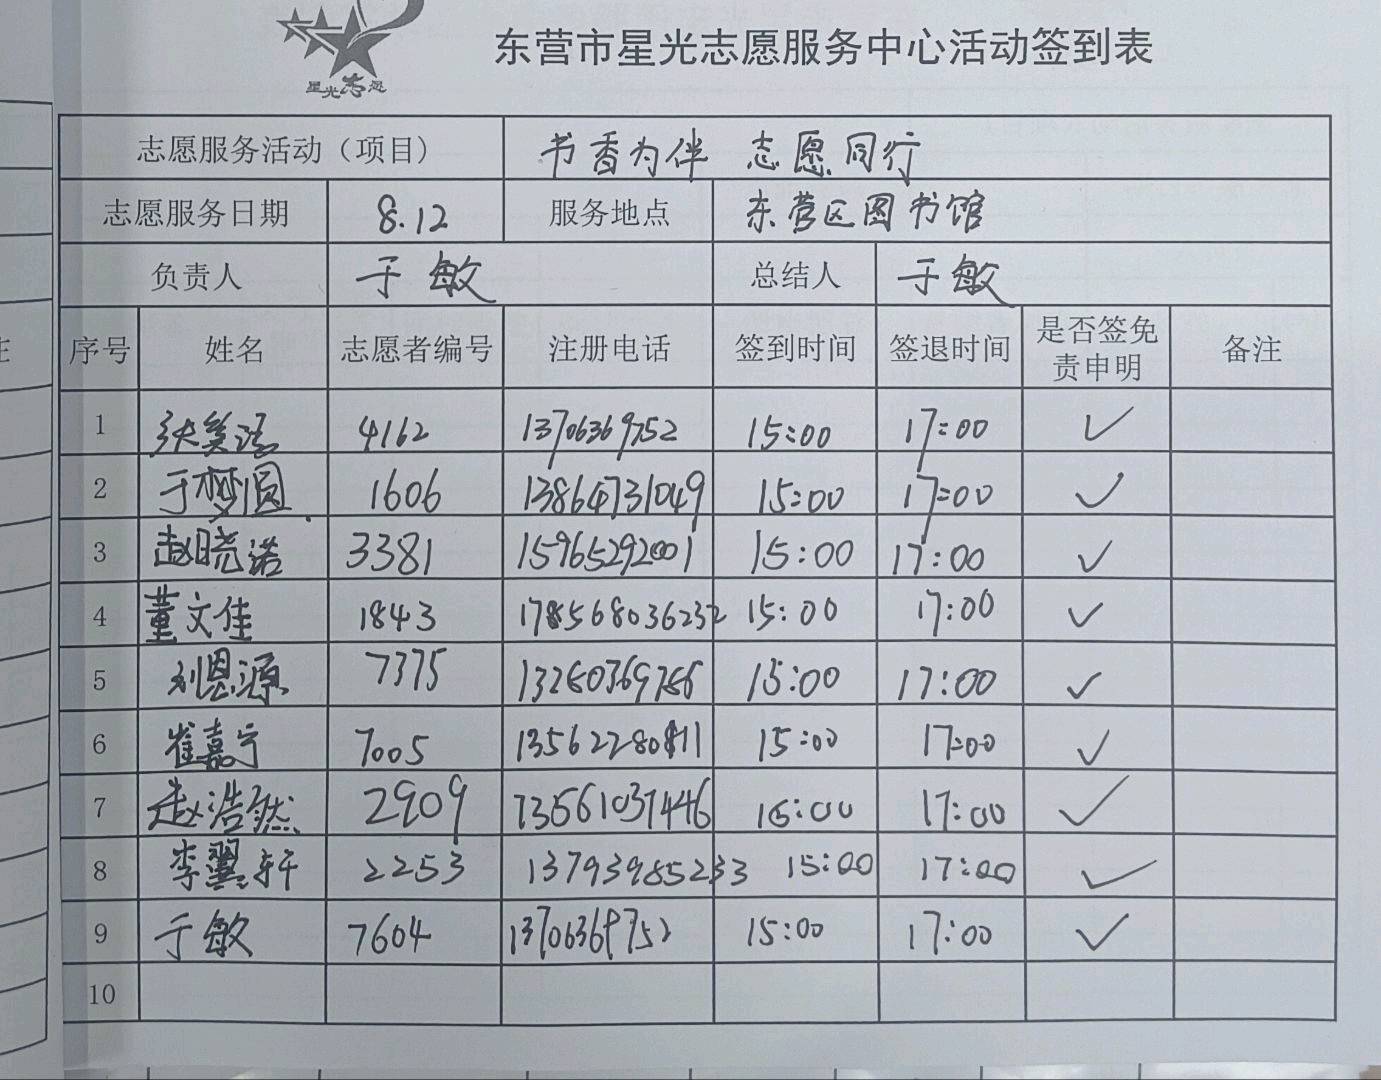 星光志愿
东营市星光志愿服务中心活动签到表
志愿服务活动（项目） 书香为伴 志愿同行
志愿服务日期 8.12 服务地点 东营区图书馆
负责人 于敏 总结人 于敏
序号 姓名 志愿者编号 注册电话 签到时间 签退时间 是否签免责申明 备注
1 张笑涵 4162 13706369752 15:00 17:00 ✓
2 于梦圆 1606 13864731049 15:00 17:00 ✓
3 赵晓诺 3381 15965292001 15:00 17:00 ✓
4 董文佳 1843 15:00 17:00 ✓
5 刘恩源 7375 15:00 17:00 ✓
6 崔嘉宁 7005 15:00 17:00 ✓
7 赵浩然 2909 13561037446 15:00 17:00 ✓
8 李翼轩 2253 13793985233 15:00 17:00 ✓
9 于敏 7604 13706369752 15:00 17:00 ✓
10